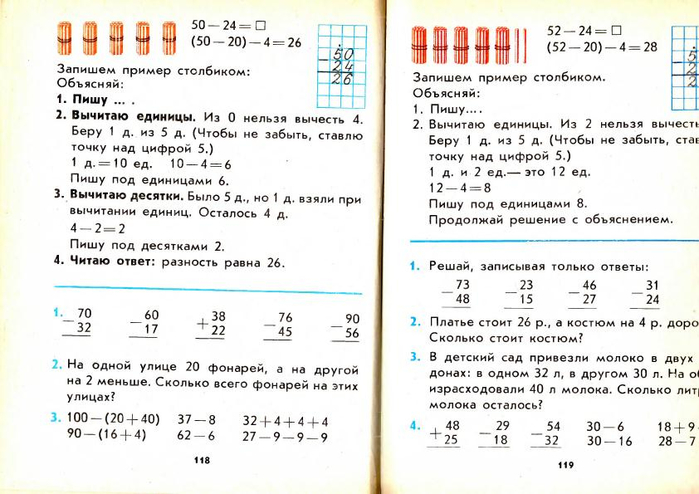 50 − 24 = □
(50 − 20) − 4 = 26
50
− 24
26
Запишем пример столбиком:
Объясняй:
1. Пишу ... .
2. Вычитаю единицы. Из 0 нельзя вычесть 4.
Беру 1 д. из 5 д. (Чтобы не забыть, ставлю
точку над цифрой 5.)
1 д. = 10 ед. 10 − 4 = 6
Пишу под единицами 6.
3. Вычитаю десятки. Было 5 д., но 1 д. взяли при
вычитании единиц. Осталось 4 д.
4 − 2 = 2
Пишу под десятками 2.
4. Читаю ответ: разность равна 26.
1. − 70 − 60 + 38 − 76 − 90
32 17 22 45 56
2. На одной улице 20 фонарей, а на другой
на 2 меньше. Сколько всего фонарей на этих
улицах?
3. 100 − (20 + 40) 37 − 8 32 + 4 + 4 + 4
90 − (16 + 4) 62 − 6 27 − 9 − 9 − 9
118
52 − 24 = □
(52 − 20) − 4 = 28
5
− 2
2
Запишем пример столбиком.
Объясняй:
1. Пишу....
2. Вычитаю единицы. Из 2 нельзя
Беру 1 д. из 5 д. (Чтобы не забыть,
точку над цифрой 5.)
1 д. и 2 ед. — это 12 ед.
12 − 4 = 8
Пишу под единицами 8.
Продолжай решение с объяснением.
1. Решай, записывая только ответы:
− 73 − 23 − 46 − 31
48 15 27 24
2. Платье стоит 26 р., а костюм на 4 р.
Сколько стоит костюм?
3. В детский сад привезли молоко в двух
донах: в одном 32 л, в другом 30 л. На
израсходовали 40 л молока. Сколько
молока осталось?
4. + 48 − 29 − 54 30 − 6 18 + 9
25 18 32 30 − 16 28 − 7
119